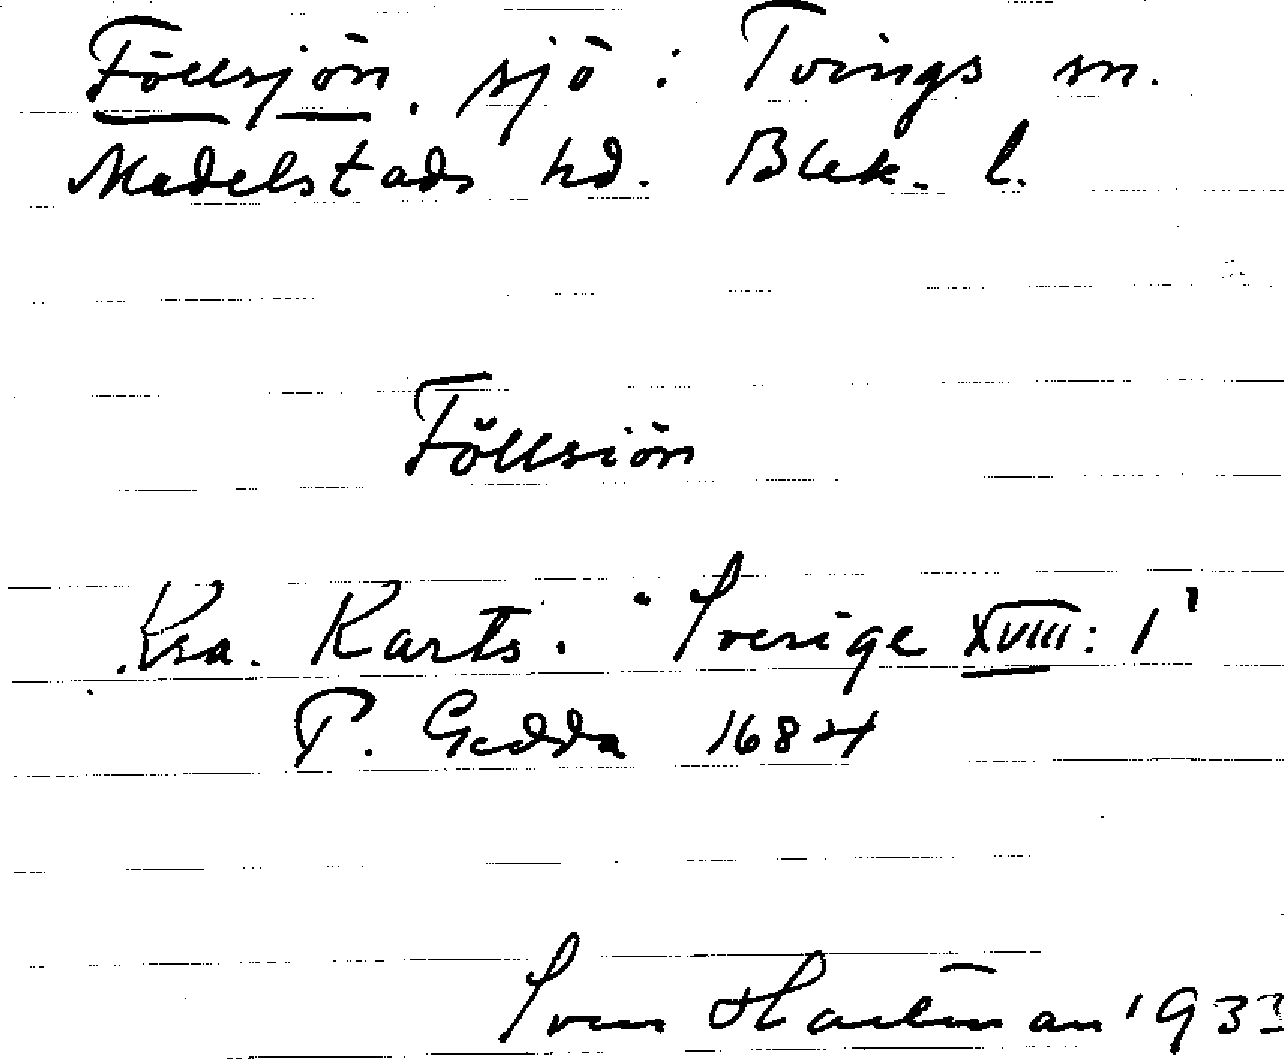 Föllsjön, sjö i Tvings sn.
Medelstads hd. Blek. l.
Föllsiön
Kra. Karts. "Sverige XVIII: 1"
P. Gedda 1684
Sven Hartman 1933